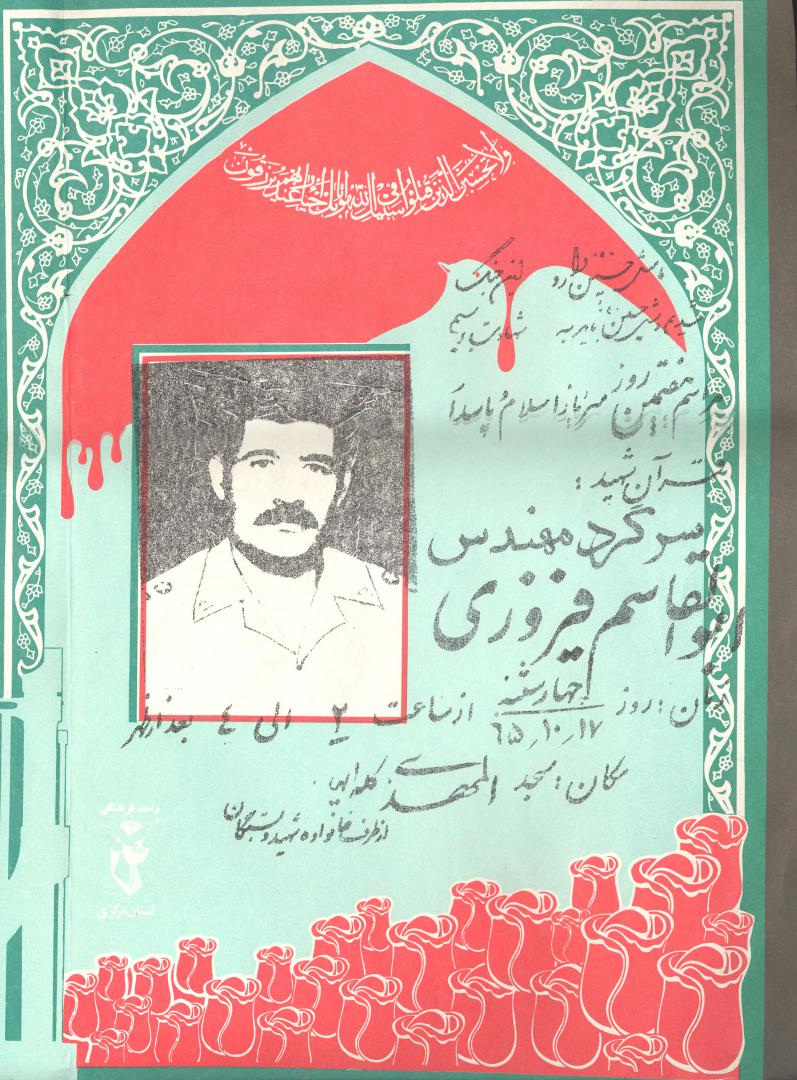 ولا تحسبن الذین قتلوا فی سبیل الله امواتا بل احیاء عند ربهم یرزقون
مراسم هفتمین روز سرباز اسلام و پاسدا
قرآن شهید :
سرگرد مهندس
ابوالقاسم فیروزی
زمان : روز چهارشنبه ۶۵٫۱۰٫۱۷ از ساعت ۲ الی ٤ بعدازظهر
مکان : مسجد المهدی
از طرف خانواده شهید و بستگان
واحد فرهنگی
استان مرکزی